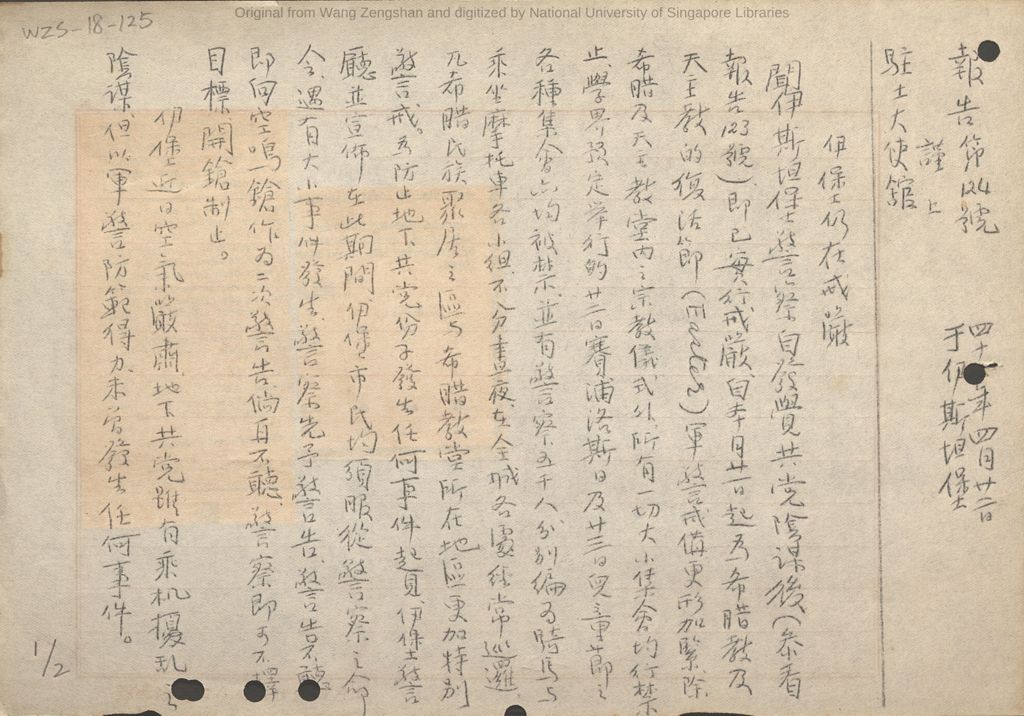 Original from Wang Zengshan and digitized by National University of Singapore Libraries
WZS-18-125
報告第124號
謹上
駐土大使舘
四十一年四月廿二日
于伊斯坦堡
伊堡仍在戒嚴
聞伊斯坦堡警察自發覺共党陰謀後(參看
報告123號)即已實行戒嚴自本月廿一日起爲希腊教及
天主教的復活節(Easter)軍警戒備更形加緊除
希腊及天主教堂内之宗教儀式外所有一切大小集會均行禁
止學界預定举行的廿二日賽浦洛斯日及廿三日兒童節之
各種集會亦均被禁並有警察五千人分别編爲騎馬与
乘坐摩托車各小組不分晝夜在全城各處經常巡邏
凡希腊民族聚居之區与希腊教堂所在地區更加特别
警戒。爲防止地下共党份子發生任何事件起見伊堡警
廳並宣佈在此期間伊堡市民均須服從警察之命
令遇有大小事件發生警察先予警告警告不聽
即向空鳴一鎗作爲二次警告倘再不聽警察即可不擇
目標開鎗制止。
伊堡近日空氣嚴肅地下共党雖有乘机擾乱之
陰謀但以軍警防範得力未曾發生任何事件。
1/2